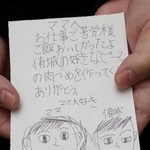 ママへ
お仕事ご苦労様
ご飯おいしかったよ
侑城の好きなピーマ
の肉つめを作ってく
ありがとう。
ママ大好き
侑城